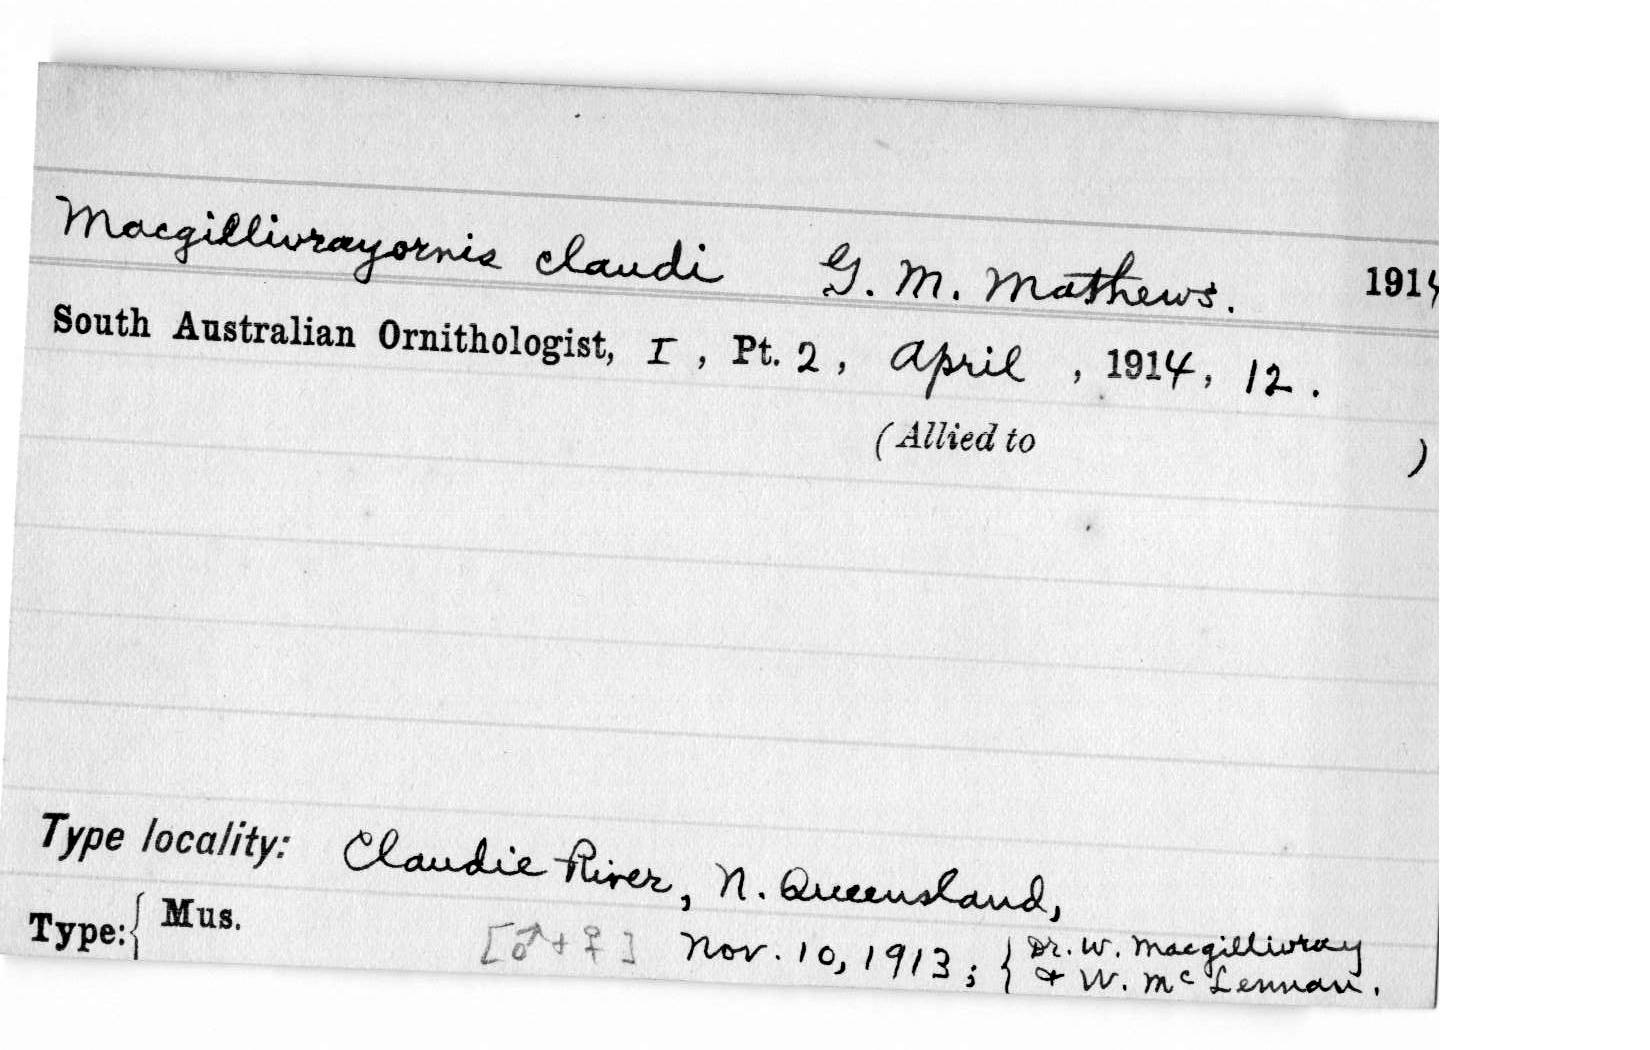 Macgillivrayornis claudi G. M. Mathews. 1914
South Australian Ornithologist, I, Pt. 2, April, 1914, 12.
(Allied to )
Type locality: Claudie River, N. Queensland,
Type: { Mus. [♂ + ♀] Nov. 10, 1913; { Dr. W. Macgillivray
& W. McLennan.